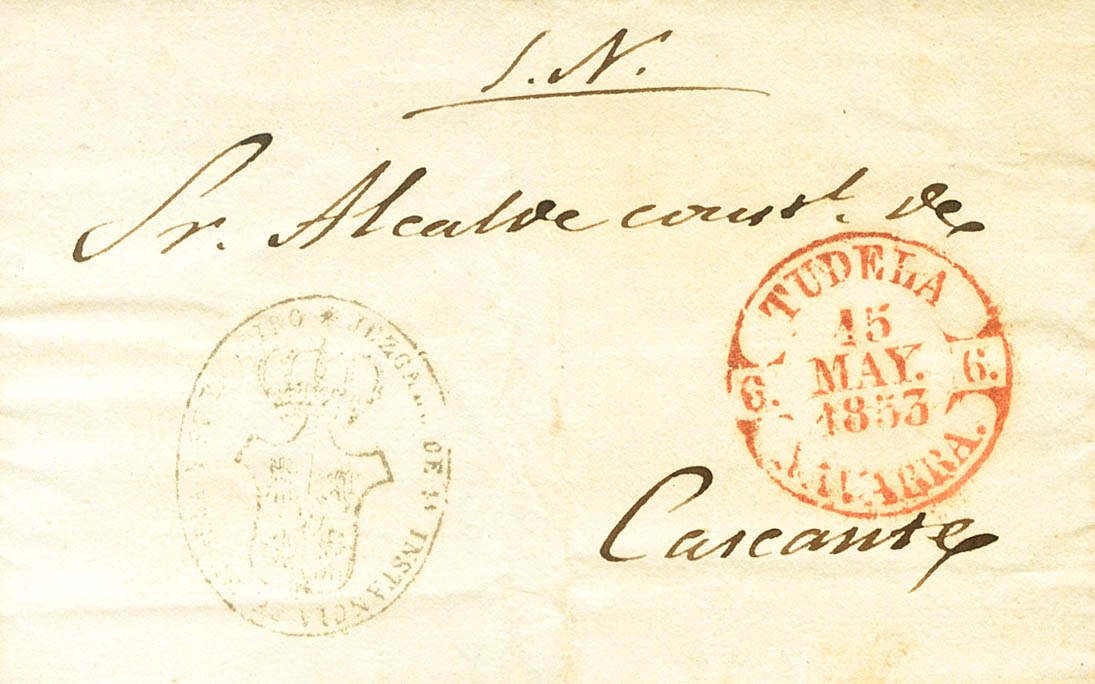 S. N.
Sr. Alcalde const.l de
TUDELA
15
MAY.
1853
6. 6.
NAVARRA.
JUZGADO DE 1ª INSTANCIA DE
Cascante